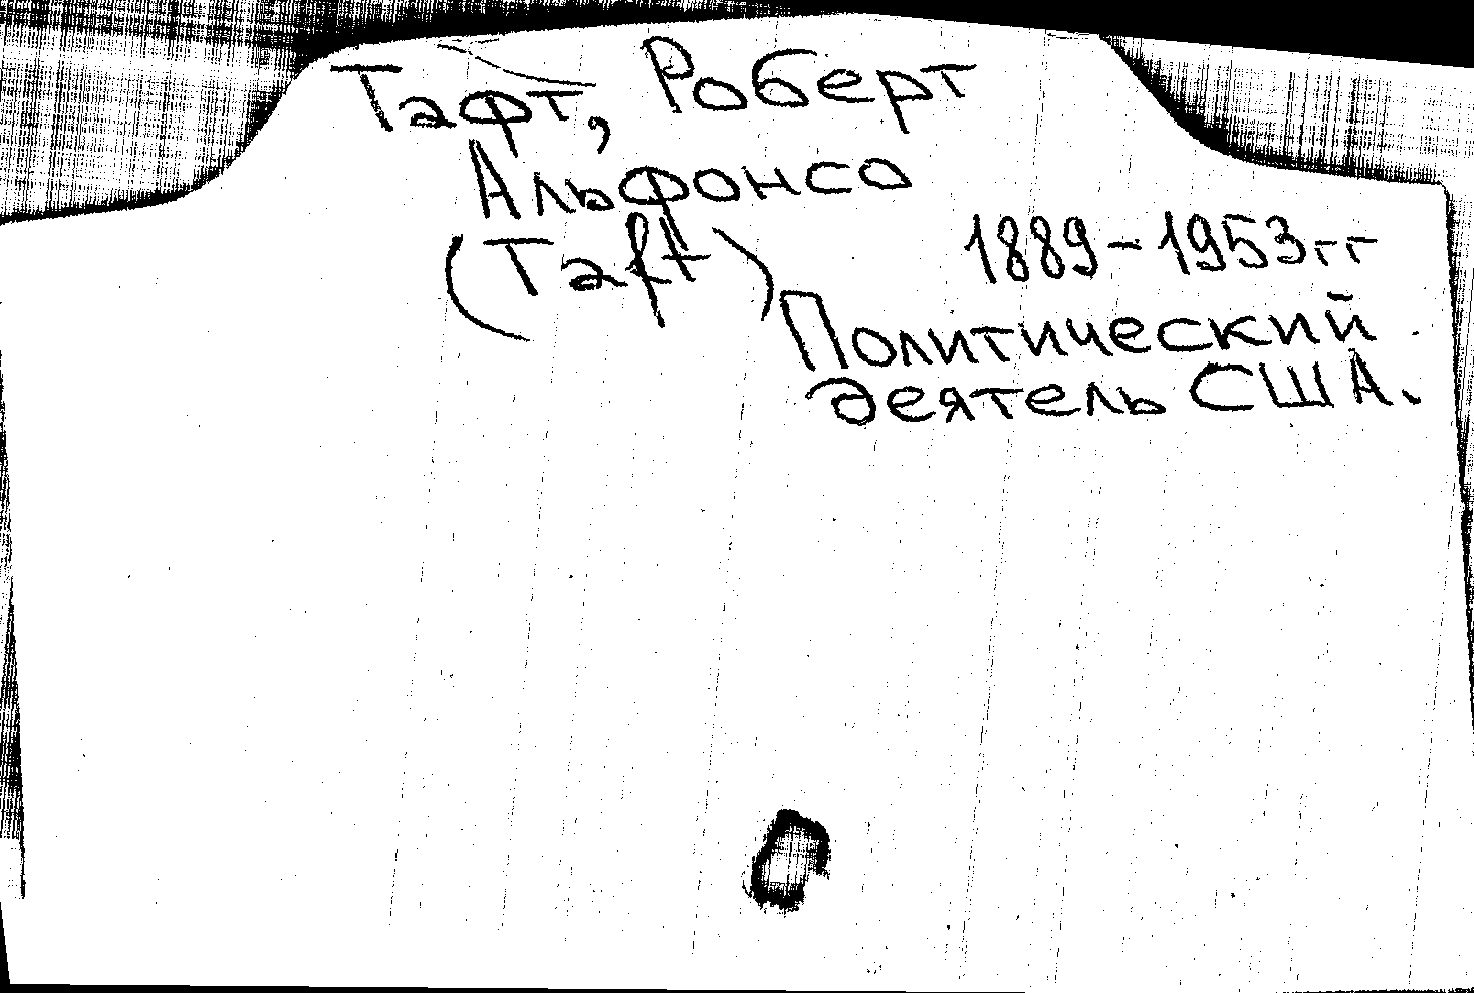 Тафт, Роберт
Альфонсо
(Taft)
1889-1953гг
Политический
деятель США.